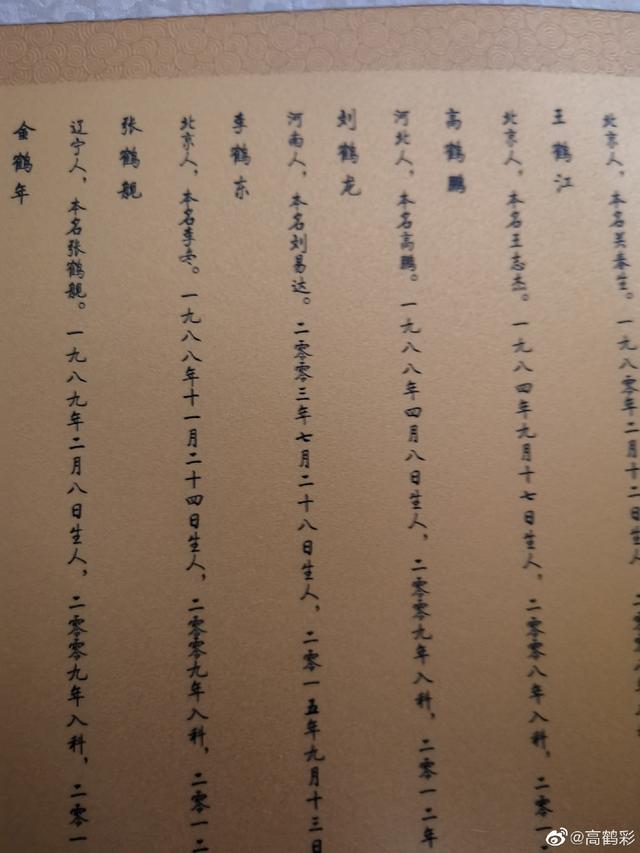 北京人，本名关泰生。一九八〇年二月十二日生人
王鹤江
北京人，本名王志杰。一九八四年九月十七日生人，二零零八年入科，二零一
高鹤鹏
河北人，本名高鹏。一九八八年四月八日生人，二零零九年入科，二零一二年
刘鹤龙
河南人，本名刘易达。二零零三年七月二十八日生人，二零一五年九月十三日
李鹤东
北京人，本名李冬。一九八八年十一月二十四日生人，二零零九年入科，二零一二
张鹤靓
辽宁人，本名张鹤靓。一九八九年二月八日生人，二零零九年入科，二零一
金鹤年
@高鹤彩